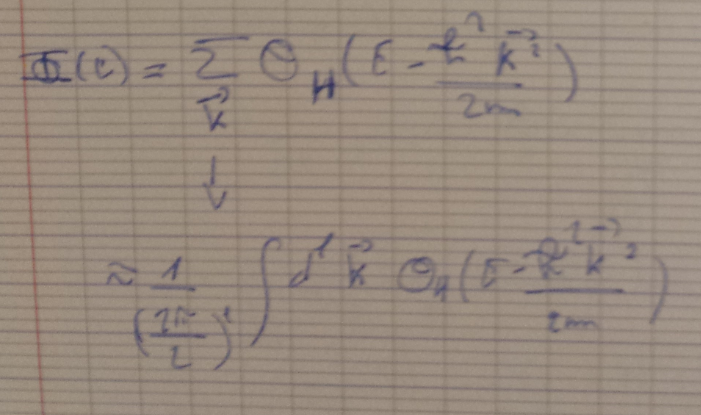 Φ(ε) = Σ_{\vec{k}} Θ_H(E - ħ² \vec{k}² / 2m)
↓
≈ 1 / (2π/L)^d ∫ d^d \vec{k} Θ_H(E - ħ² \vec{k}² / 2m)